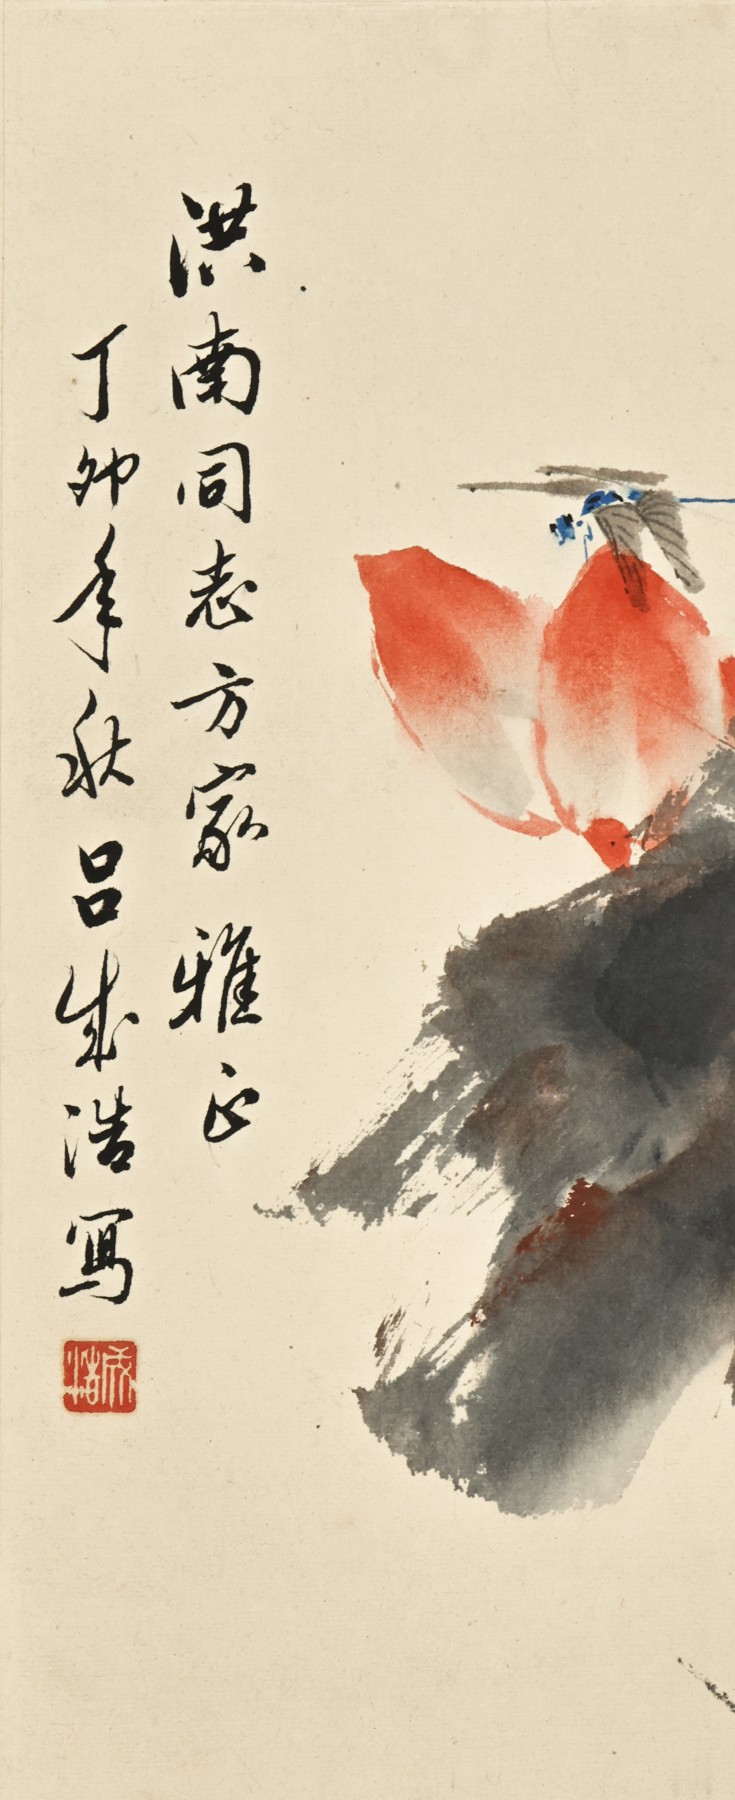 洪南同志方家雅正
丁卯年秋吕成浩写
成浩